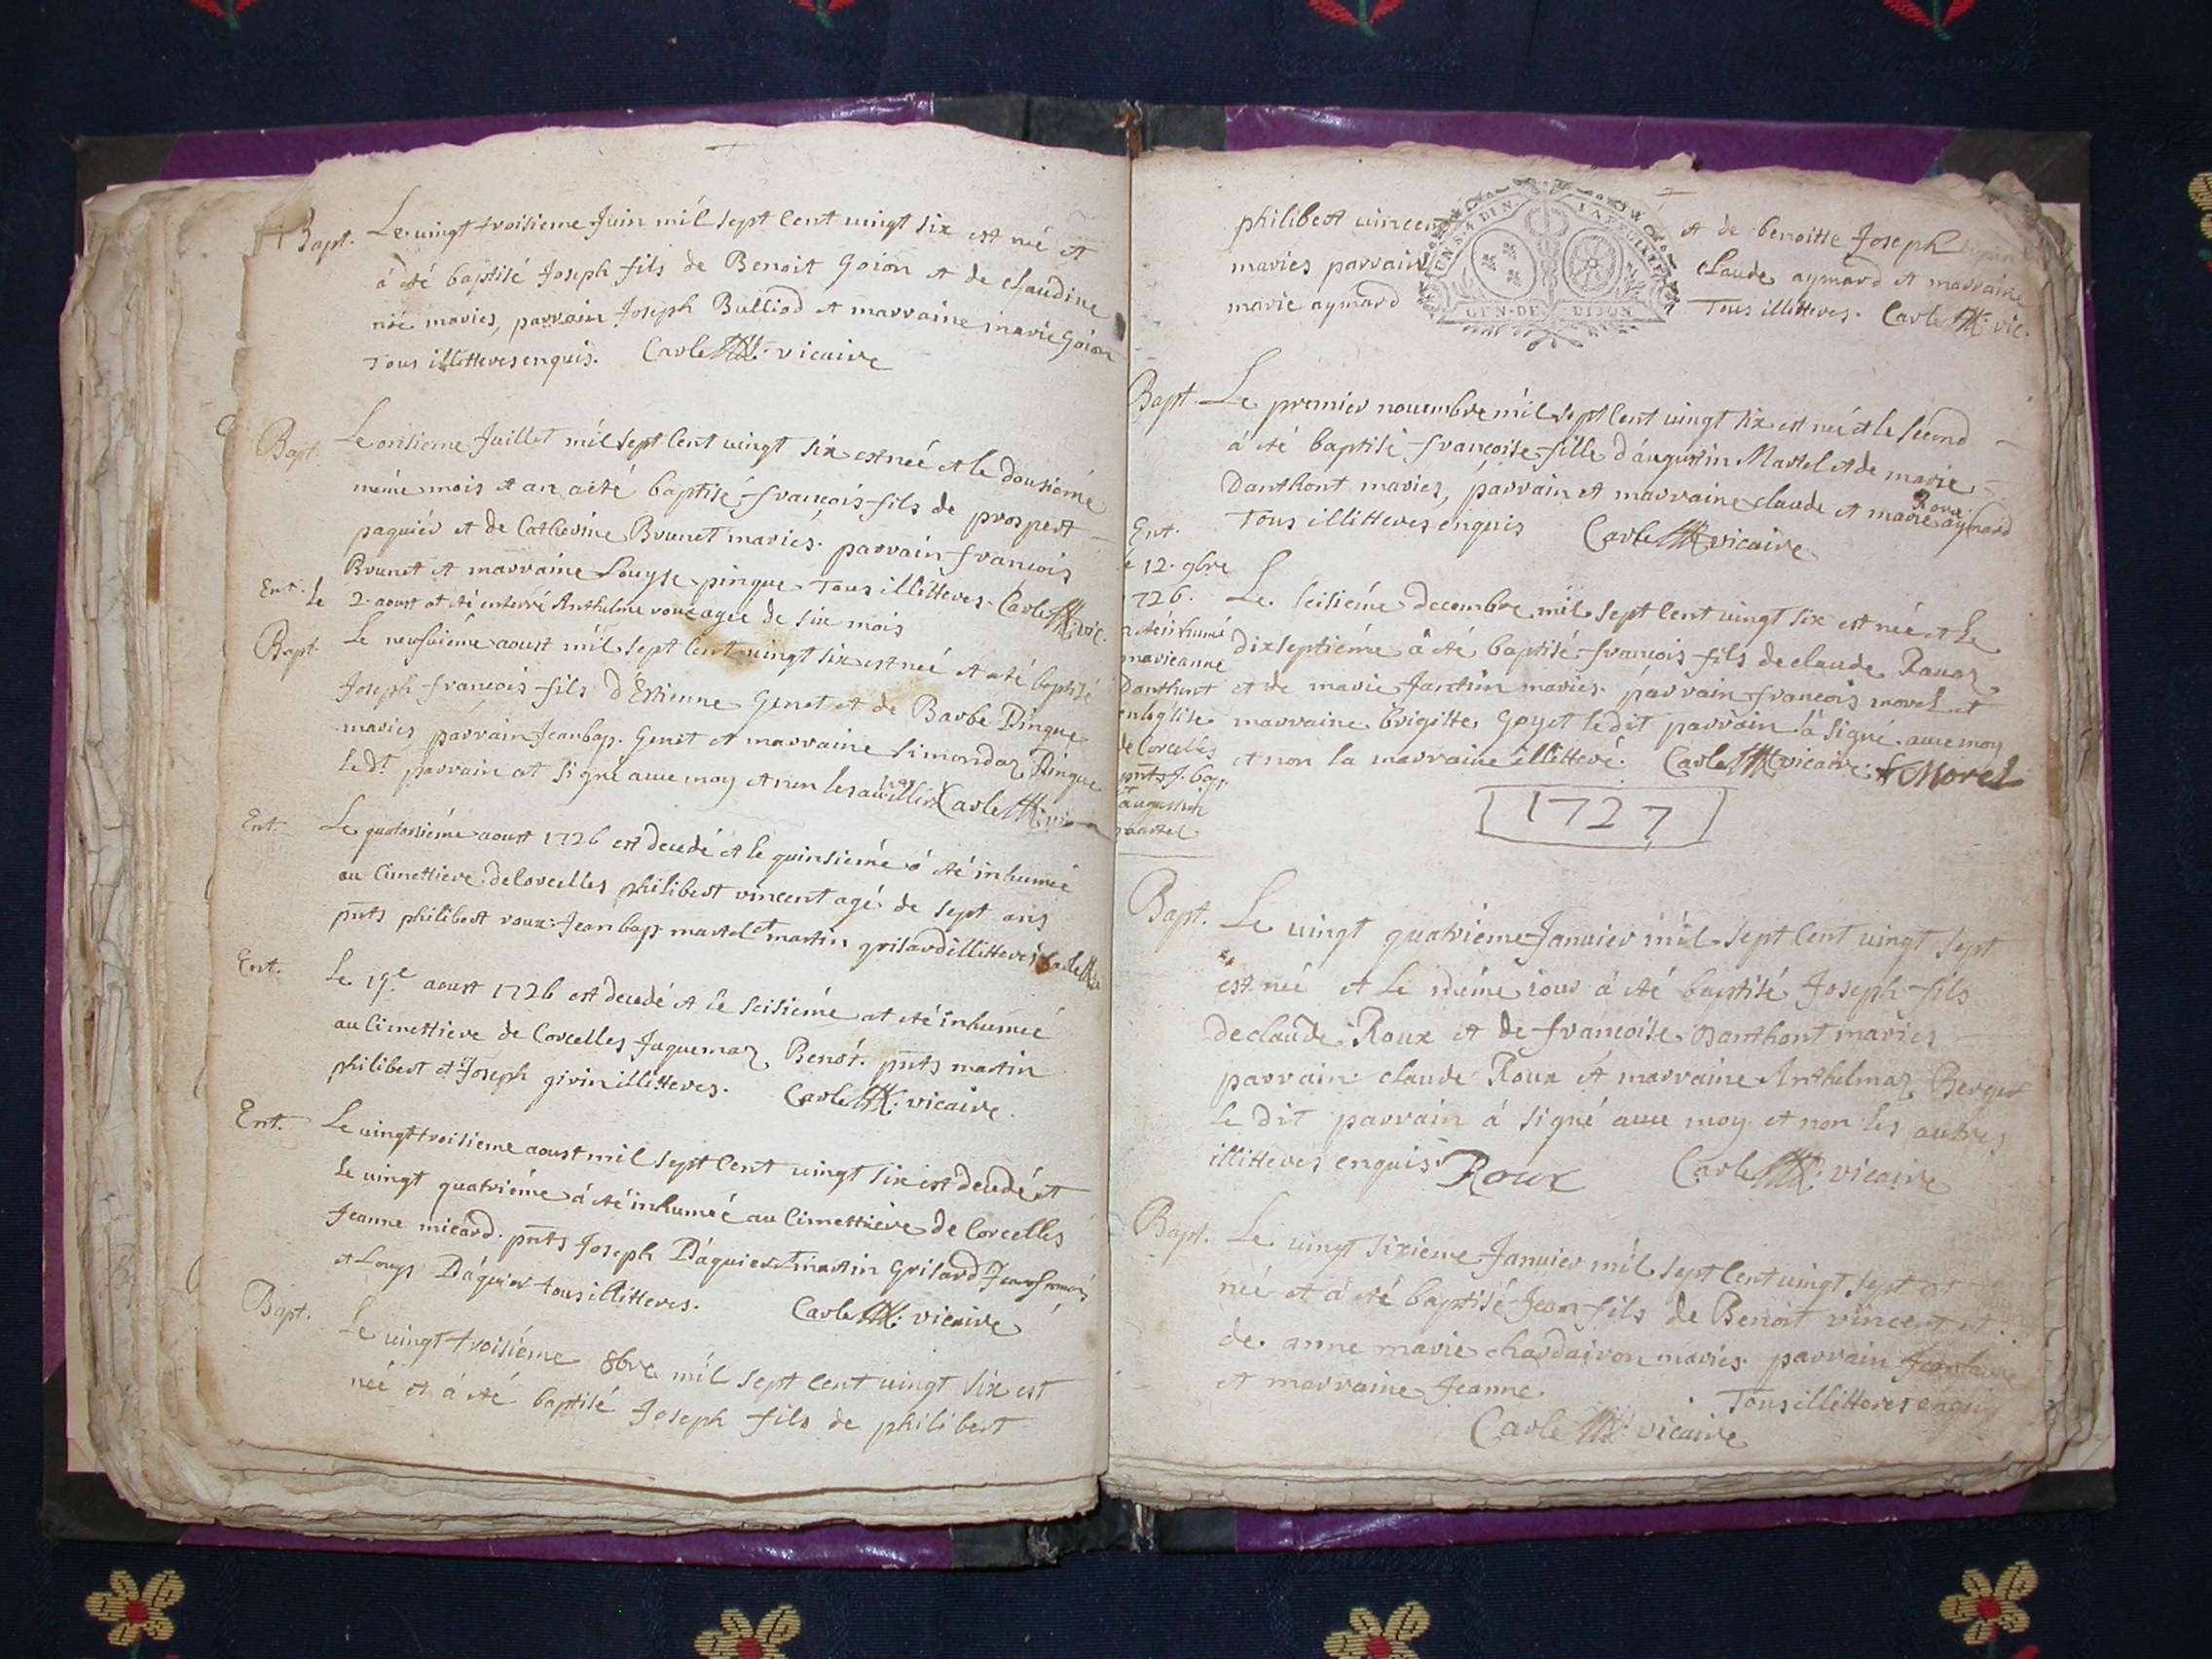 Bapt. Le vingt troisieme Juin mil sept cent vingt six est né et
à été baptisé Joseph fils de Benoit Goion et de claudine
mariés, parrain Joseph Bulliod et marraine marie Goion
Tous illitteres enquis. Carle vicaire
Bapt. Le onsieme Juillet mil sept cent vingt six est née et le dousiéme
méme mois et an a été baptisé françois fils de prospert
paquier et de Catherine Brunet mariés. parrain francois
Brunet et marraine Louyse pingue Tous illitteres. Carle vic.
Ent. Le 2. aoust at été enterré Anthelme roux agee de six mois
Bapt. Le neufviéme aoust mil sept cent vingt six est neé et a été baptisé
Joseph francois fils d'Estienne Genet et de Barbe Pingue
mariés parrain Jean bap. Genet et marraine Simondaz Pingue
le dt. parrain at signé avec moy et non les Carle
Ent. Le quatorsiéme aoust 1726 est decedé et le quinsiéme à été inhumeé
au Cimettiere de Corcelles philibert vincent agé de sept ans
pnts philibert roux. Jean bap martel et martin grisard illitteres Carle
Ent. Le 15e aoust 1726 est decedé et le seisiéme at été inhumeé
au Cimettiere de Corcelles Jaquemaz Benoit. pnts martin
philibert et Joseph girin illitteres. Carle vicaire.
Ent. Le vingt troisieme aoust mil sept cent vingt six est decedé et
le vingt quatriéme à été inhumeé au Cimettiere de Corcelles
Jeanne micard. pnts Joseph Páquier martin Grisard Jean
et Louys Páquier tous illitteres. Carle vicaire
Bapt. Le vingt troisiéme 8bre mil sept cent vingt six est
neé et à été baptisé Joseph fils de philibert
philibert vincent et de benoitte Joseph
mariés parrain claude aymard et marraine
marie aymard Tous illitteres. Carle vic.
GEN·DE DIJON
Bapt. Le premier novembre mil sept cent vingt six est neé et le second
à été baptisé françoise fille d'augustin Martel et de marie
Danthont mariés, párrain et marraine claude et marie aymard
Roux
Tous illitteres enquis Carle vicaire
Ent.
le 12. 9bre
1726.
a été inhumé
marie anne
Danthont
en leglise
de Corcelles
pnts J. bap.
et augustin
martel
Le seisiéme decembre mil sept cent vingt six est neé et le
dixseptiéme à été baptisé francois fils de claude Ravaz
et de marie Jantin mariés. párrain francois morel et
marraine brigitte Goyet le dit parrain à signé avec moy
et non la marraine illitteré. Carle vicaire. f Morel
1727
Bapt. Le vingt quatriéme Janvier mil sept cent vingt sept
est neé et le méme jour à été baptisé Joseph fils
de claude Roux et de francoise Danthont mariés
parrain claude Roux et marraine Anthelmaz Berger
le dit parrain à signé avec moy et non les autres
illitteres enquis Roux Carle vicaire
Bapt. Le vingt sixieme Janvier mil sept cent vingt sept est
neé et à été baptisé Jean fils de Benoit vincent et
de anne marie chardairon mariés. parrain Jean
et marraine Jeanne. Tous illitteres enquis
Carle vicaire